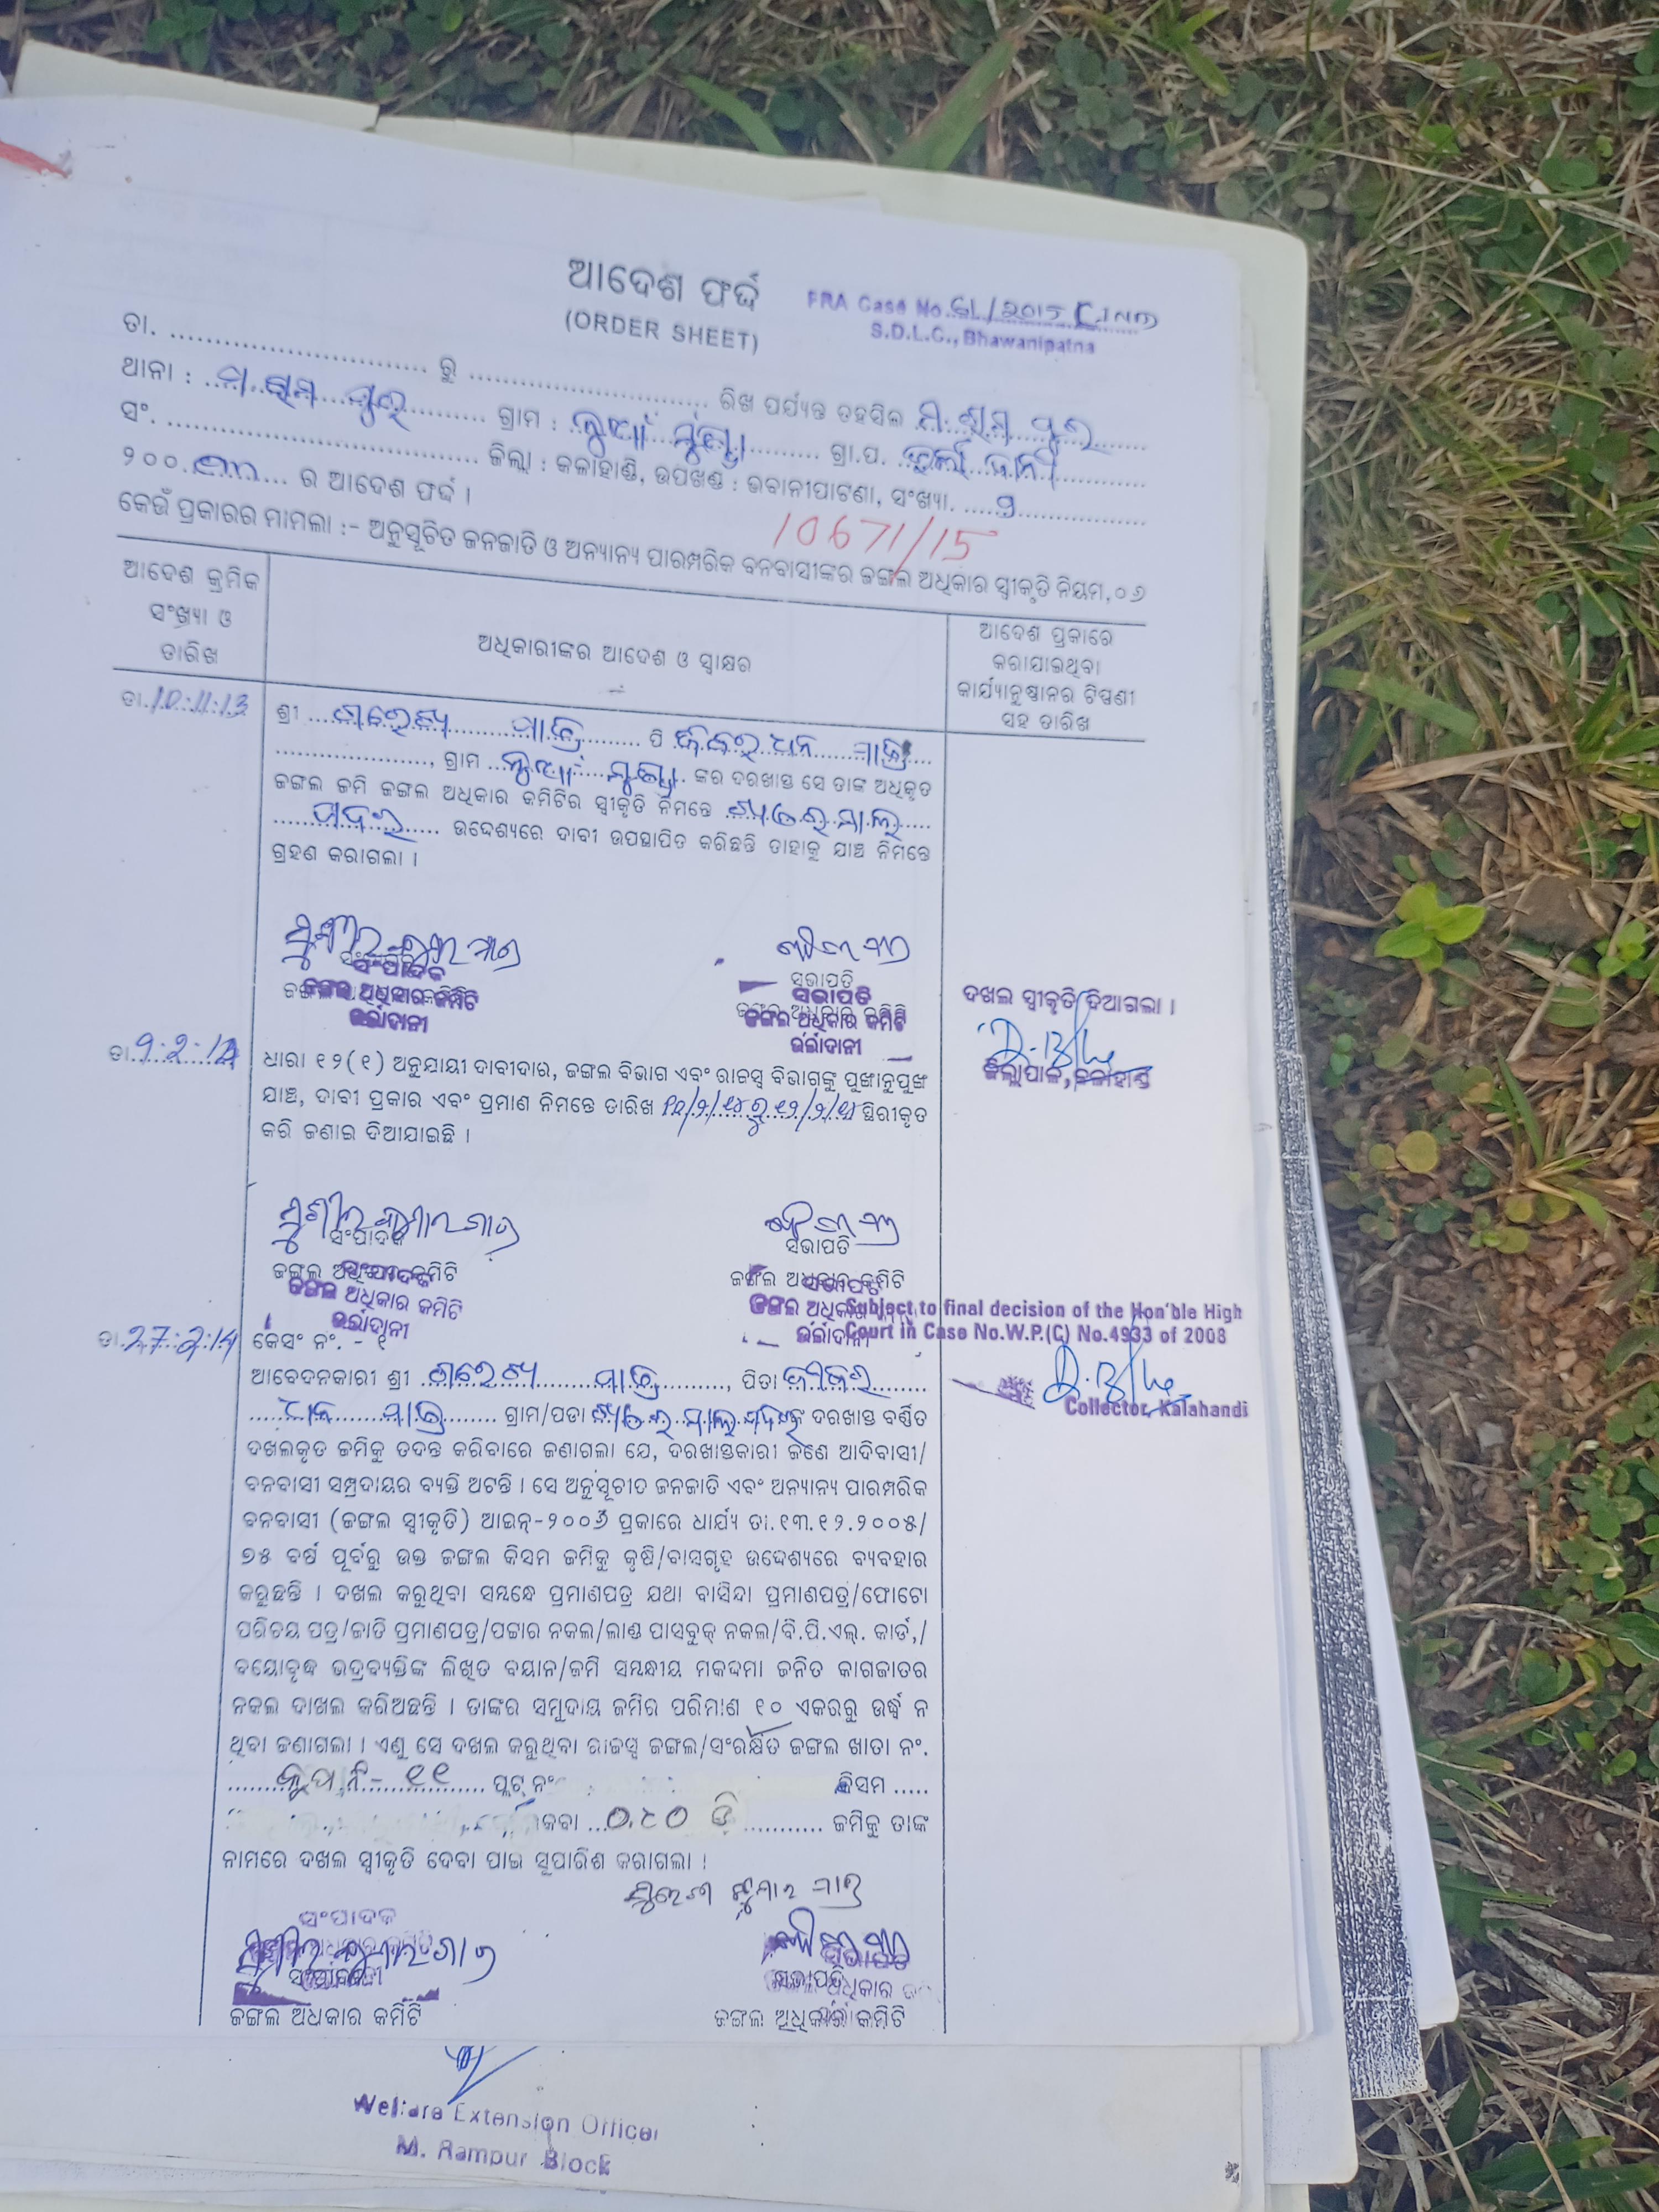 ଆଦେଶ ଫର୍ଦ୍ଦ
(ORDER SHEET)
FRA Case No. 61/2015
S.D.L.C., Bhawanipatna
ତା. ........ ରୁ ........ ରିଖ ପର୍ଯ୍ୟନ୍ତ ତହସିଲ ମ. ରାମ ପୁର
ଥାନା : ମ. ରାମ ପୁର ଗ୍ରାମ : ନୂଆଁ ମୁଣ୍ଡା ଗ୍ରା.ପ. ଉର୍ଲାଦାନୀ
ସଂ. ........ ଜିଲ୍ଲା : କଳାହାଣ୍ଡି, ଉପଖଣ୍ଡ : ଭବାନୀପାଟଣା, ସଂଖ୍ୟା. ........
୨୦୦ ........ ର ଆଦେଶ ଫର୍ଦ୍ଦ ।
10671/15
କେଉଁ ପ୍ରକାରର ମାମଲା :- ଅନୁସୂଚିତ ଜନଜାତି ଓ ଅନ୍ୟାନ୍ୟ ପାରମ୍ପରିକ ବନବାସୀଙ୍କର ଜଙ୍ଗଲ ଅଧିକାର ସ୍ୱୀକୃତି ନିୟମ,୦୬
ଆଦେଶ କ୍ରମିକ
ସଂଖ୍ୟା ଓ
ତାରିଖ
ଅଧିକାରୀଙ୍କର ଆଦେଶ ଓ ସ୍ୱାକ୍ଷର
ଆଦେଶ ପ୍ରକାରେ
କରାଯାଇଥିବା
କାର୍ଯ୍ୟାନୁଷ୍ଠାନର ଟିପ୍ପଣୀ
ସହ ତାରିଖ
ତା.10.11.13
ଶ୍ରୀ ........ ମାଝି ପି ........ ଧନ ମାଝି
........, ଗ୍ରାମ ନୂଆଁ ମୁଣ୍ଡା ଙ୍କର ଦରଖାସ୍ତ ସେ ତାଙ୍କ ଅଧିକୃତ
ଜଙ୍ଗଲ ଜମି ଜଙ୍ଗଲ ଅଧିକାର କମିଟିର ସ୍ୱୀକୃତି ନିମନ୍ତେ ........
........ ଉଦ୍ଦେଶ୍ୟରେ ଦାବୀ ଉପସ୍ଥାପିତ କରିଛନ୍ତି ତାହାକୁ ଯାଞ୍ଚ ନିମନ୍ତେ
ଗ୍ରହଣ କରାଗଲା ।
ସଂପାଦକ
ଜଙ୍ଗଲ ଅଧିକାର କମିଟି
ଉର୍ଲାଦାନୀ
ସଭାପତି
ଜଙ୍ଗଲ ଅଧିକାର କମିଟି
ଉର୍ଲାଦାନୀ
ଦଖଲ ସ୍ୱୀକୃତି ଦିଆଗଲା ।
ଜିଲ୍ଲାପାଳ, କଳାହାଣ୍ଡି
ତା.9.2.14
ଧାରା ୧୨(୧) ଅନୁଯାୟୀ ଦାବୀଦାର, ଜଙ୍ଗଲ ବିଭାଗ ଏବଂ ରାଜସ୍ୱ ବିଭାଗଙ୍କୁ ପୁଙ୍ଖାନୁପୁଙ୍ଖ
ଯାଞ୍ଚ, ଦାବୀ ପ୍ରକାର ଏବଂ ପ୍ରମାଣ ନିମନ୍ତେ ତାରିଖ ........ ସ୍ଥିରୀକୃତ
କରି ଜଣାଇ ଦିଆଯାଇଛି ।
ସଂପାଦକ
ଜଙ୍ଗଲ ଅଧିକାର କମିଟି
ଉର୍ଲାଦାନୀ
ସଭାପତି
ଜଙ୍ଗଲ ଅଧିକାର କମିଟି
ଉର୍ଲାଦାନୀ
Subject to final decision of the Hon'ble High
Court in Case No.W.P.(C) No.4933 of 2008
Collector, Kalahandi
ତା.27.2.14
କେସଂ ନଂ. - ୧
ଆବେଦନକାରୀ ଶ୍ରୀ ........ ମାଝି, ପିତା ........
ଧନ ମାଝି ଗ୍ରାମ/ପଡା ........ଙ୍କ ଦରଖାସ୍ତ ବର୍ଣ୍ଣିତ
ଦଖଲକୃତ ଜମିକୁ ତଦନ୍ତ କରିବାରେ ଜଣାଗଲା ଯେ, ଦରଖାସ୍ତକାରୀ ଜଣେ ଆଦିବାସୀ/
ବନବାସୀ ସମ୍ପ୍ରଦାୟର ବ୍ୟକ୍ତି ଅଟନ୍ତି । ସେ ଅନୁସୂଚୀତ ଜନଜାତି ଏବଂ ଅନ୍ୟାନ୍ୟ ପାରମ୍ପରିକ
ବନବାସୀ (ଜଙ୍ଗଲ ସ୍ୱୀକୃତି) ଆଇନ୍-୨୦୦୬ ପ୍ରକାରେ ଧାର୍ଯ୍ୟ ତା.୧୩.୧୨.୨୦୦୫/
୭୫ ବର୍ଷ ପୂର୍ବରୁ ଉକ୍ତ ଜଙ୍ଗଲ କିସମ ଜମିକୁ କୃଷି/ବାସଗୃହ ଉଦ୍ଦେଶ୍ୟରେ ବ୍ୟବହାର
କରୁଛନ୍ତି । ଦଖଲ କରୁଥିବା ସମ୍ବନ୍ଧେ ପ୍ରମାଣପତ୍ର ଯଥା ବାସିନ୍ଦା ପ୍ରମାଣପତ୍ର/ଫୋଟୋ
ପରିଚୟ ପତ୍ର/ଜାତି ପ୍ରମାଣପତ୍ର/ପଟ୍ଟାର ନକଲ/ଲାଣ୍ଡ ପାସବୁକ୍ ନକଲ/ବି.ପି.ଏଲ୍. କାର୍ଡ,/
ବୟୋବୃଦ୍ଧ ଭଦ୍ରବ୍ୟକ୍ତିଙ୍କ ଲିଖିତ ବୟାନ/ଜମି ସମ୍ବନ୍ଧୀୟ ମକଦ୍ଦମା ଜନିତ କାଗଜାତର
ନକଲ ଦାଖଲ କରିଅଛନ୍ତି । ତାଙ୍କର ସମୁଦାୟ ଜମିର ପରିମାଣ ୧୦ ଏକରରୁ ଉର୍ଦ୍ଧ୍ୱ ନ
ଥିବା ଜଣାଗଲା । ଏଣୁ ସେ ଦଖଲ କରୁଥିବା ରାଜସ୍ୱ ଜଙ୍ଗଲ/ସଂରକ୍ଷିତ ଜଙ୍ଗଲ ଖାତା ନଂ.
........ ୧୧ ........ ପ୍ଲଟ୍ ନଂ ........ କିସମ .....
........ ରକବା ... ୦.୮୦ ଡି ........ ଜମିକୁ ତାଙ୍କ
ନାମରେ ଦଖଲ ସ୍ୱୀକୃତି ଦେବା ପାଇଁ ସୁପାରିଶ କରାଗଲା ।
ସଂପାଦକ
ଜଙ୍ଗଲ ଅଧିକାର କମିଟି
ସଭାପତି
ଜଙ୍ଗଲ ଅଧିକାର କମିଟି
Welfare Extension Officer
M. Rampur Block